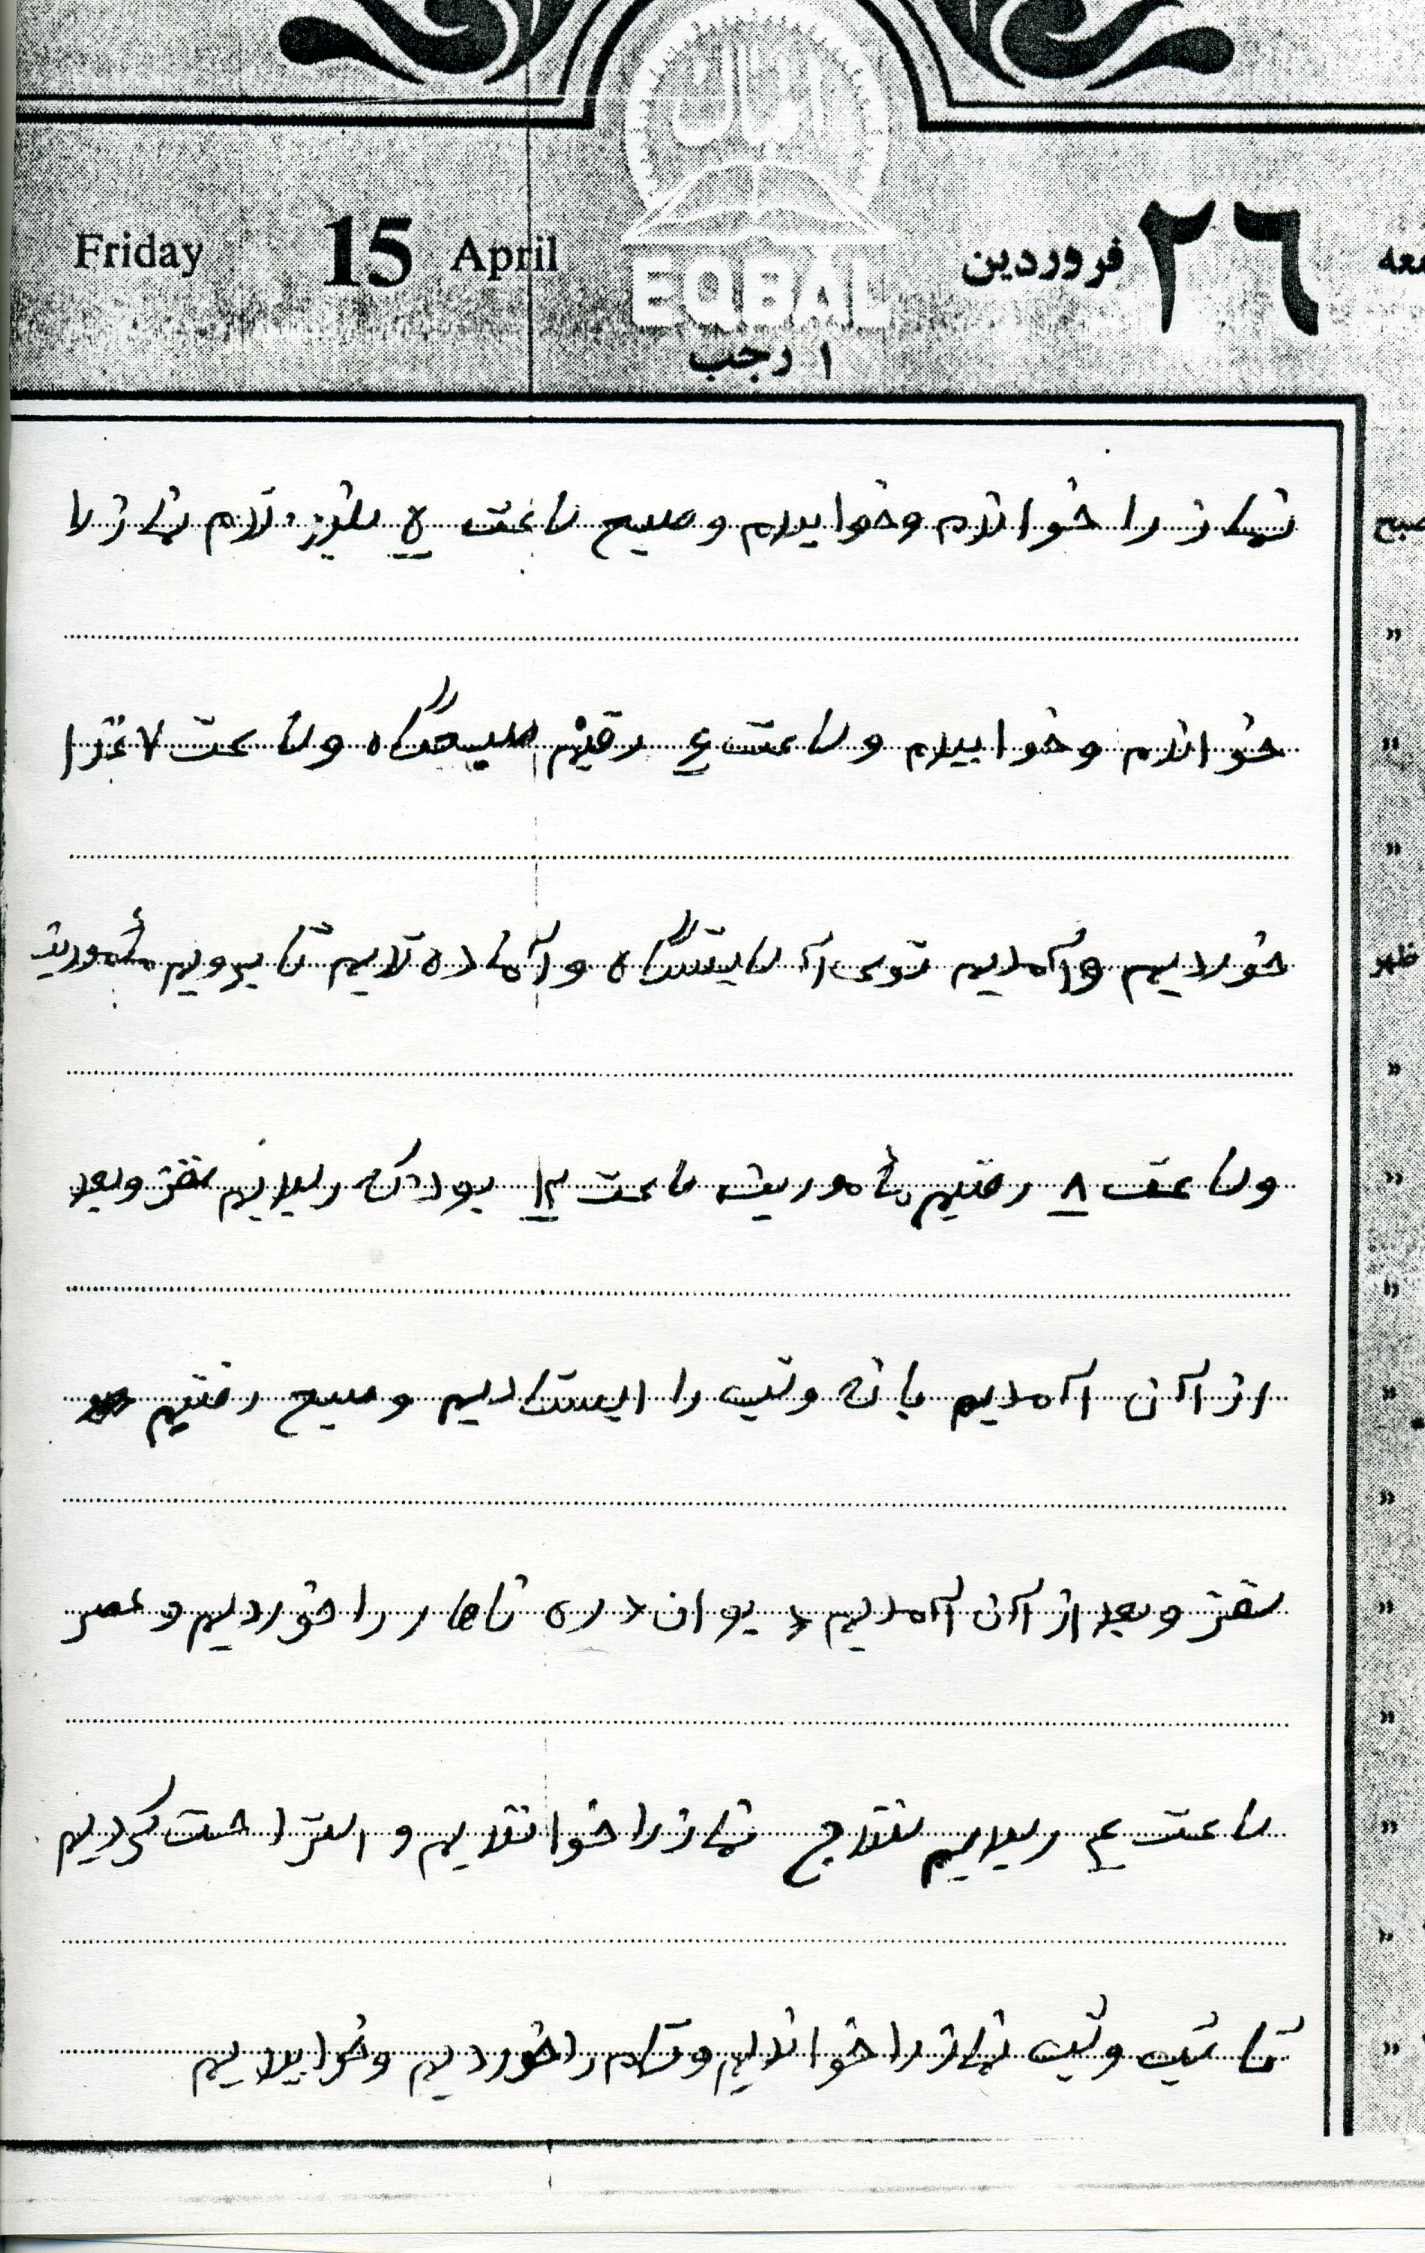 اقبال
EQBAL
Friday 15 April
۲٦ فروردین
۱ رجب
نماز را خواندم و خوابیدم و صبح ساعت ۵ بلند شدم نماز را
خواندم و خوابیدم و ساعت ۶ رفتیم صبحگاه و ساعت ۷ غذا
خوردیم و آمدیم توی آسایشگاه و آماده شدیم تا برویم مأموریت
و ساعت ۸ رفتیم مأموریت ساعت ۱۲ بود که رسیدیم سقز و بعد
از آن آمدیم بانه و شب را ایستادیم و صبح رفتیم
سقز و بعد از آن آمدیم دیوان دره ناهار را خوردیم و عصر
ساعت ۴ رسیدیم سنندج نماز را خواندیم و استراحت کردیم
تا شب و شب نماز را خواندیم و شام را خوردیم و خوابیدیم
صبح
»
»
»
ظهر
»
»
»
»
»
»
»
»
»
»